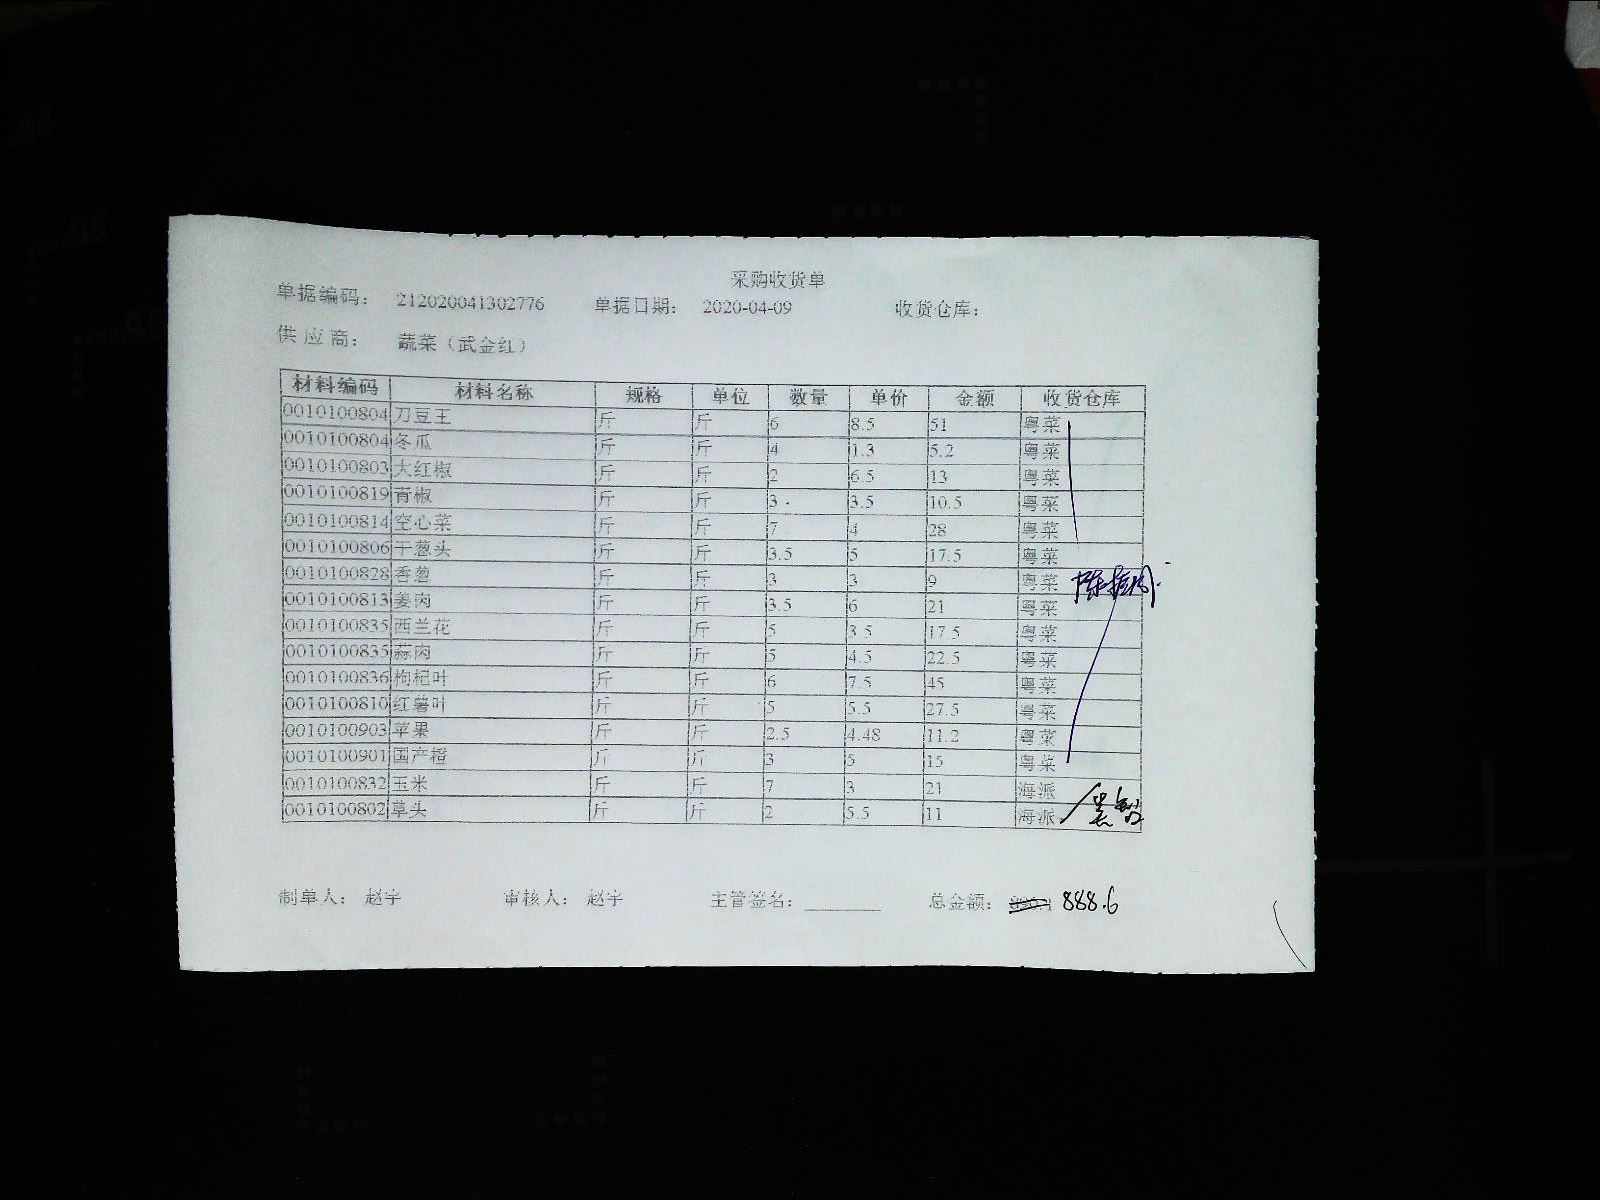 采购收货单
单据编码: 212020041302776 单据日期: 2020-04-09 收货仓库:
供应商: 蔬菜（武金红）
材料编码 材料名称 规格 单位 数量 单价 金额 收货仓库
0010100804 刀豆王 斤 斤 6 8.5 51 粤菜
0010100804 冬瓜 斤 斤 4 1.3 5.2 粤菜
0010100803 大红椒 斤 斤 2 6.5 13 粤菜
0010100819 青椒 斤 斤 3 3.5 10.5 粤菜
0010100814 空心菜 斤 斤 7 4 28 粤菜
0010100806 干葱头 斤 斤 3.5 5 17.5 粤菜
0010100828 香葱 斤 斤 3 3 9 粤菜
0010100813 姜肉 斤 斤 3.5 6 21 粤菜
0010100835 西兰花 斤 斤 5 3.5 17.5 粤菜
0010100835 蒜肉 斤 斤 5 4.5 22.5 粤菜
0010100836 枸杞叶 斤 斤 6 7.5 45 粤菜
0010100810 红薯叶 斤 斤 5 5.5 27.5 粤菜
0010100903 苹果 斤 斤 2.5 4.48 11.2 粤菜
0010100901 国产橙 斤 斤 3 5 15 粤菜
0010100832 玉米 斤 斤 7 3 21 海派
0010100802 草头 斤 斤 2 5.5 11 海派
制单人: 赵宇 审核人: 赵宇 主管签名: 总金额: 888.6